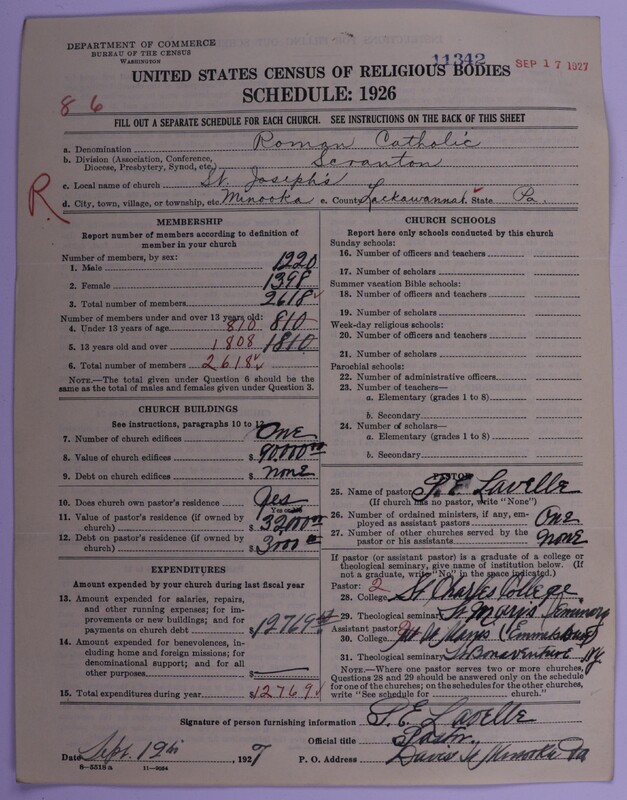 DEPARTMENT OF COMMERCE
BUREAU OF THE CENSUS
WASHINGTON
11342
SEP 17 1927
UNITED STATES CENSUS OF RELIGIOUS BODIES
SCHEDULE: 1926
86
FILL OUT A SEPARATE SCHEDULE FOR EACH CHURCH. SEE INSTRUCTIONS ON THE BACK OF THIS SHEET
a. Denomination Roman Catholic
b. Division (Association, Conference, Diocese, Presbytery, Synod, etc.) Scranton
c. Local name of church St. Joseph's
R
d. City, town, village, or township, etc. Minooka e. County Lackawannah State Pa.
MEMBERSHIP
Report number of members according to definition of
member in your church
Number of members, by sex:
1. Male 1220
2. Female 1398
3. Total number of members 2618
Number of members under and over 13 years old:
4. Under 13 years of age 810 810
5. 13 years old and over 1808 1810
6. Total number of members 2618
NOTE.—The total given under Question 6 should be
same as the total of males and females given under Question 3.
CHURCH BUILDINGS
See instructions, paragraphs 10 to 12
7. Number of church edifices One
8. Value of church edifices $ 90,000 00
9. Debt on church edifices $ none
10. Does church own pastor's residence Yes
Yes or No
11. Value of pastor's residence (if owned by
church) $ 32000 00
12. Debt on pastor's residence (if owned by
church) $ 3000 00
EXPENDITURES
Amount expended by your church during last fiscal year
13. Amount expended for salaries, repairs,
and other running expenses; for im-
provements or new buildings; and for
payments on church debt $ 12769
14. Amount expended for benevolences, in-
cluding home and foreign missions; for
denominational support; and for all
other purposes $
15. Total expenditures during year $ 12769
CHURCH SCHOOLS
Report here only schools conducted by this church
Sunday schools:
16. Number of officers and teachers
17. Number of scholars
Summer vacation Bible schools:
18. Number of officers and teachers
19. Number of scholars
Week-day religious schools:
20. Number of officers and teachers
21. Number of scholars
Parochial schools:
22. Number of administrative officers
23. Number of teachers—
a. Elementary (grades 1 to 8)
b. Secondary
24. Number of scholars—
a. Elementary (grades 1 to 8)
b. Secondary
PASTOR
25. Name of pastor P. E. Lavelle
(If church has no pastor, write "None")
26. Number of ordained ministers, if any, em-
ployed as assistant pastors One
27. Number of other churches served by the
pastor or his assistants none
If pastor (or assistant pastor) is a graduate of a college or
theological seminary, give name of institution below. (If
not a graduate, write "No" in the space indicated.)
Pastor: 2
28. College St Charles College
29. Theological seminary St Marys Seminary
Assistant pastor:
30. College Mt St Marys (Emmitsburg)
31. Theological seminary St Bonaventure NY
NOTE.—Where one pastor serves two or more churches,
Questions 28 and 29 should be answered only on the schedule
for one of the churches; on the schedules for the other churches,
write "See schedule for church."
Signature of person furnishing information P. E. Lavelle
Official title Pastor
Date Sept. 19th, 1927 P. O. Address Davis St Minooka Pa
8-5518a 11-9054